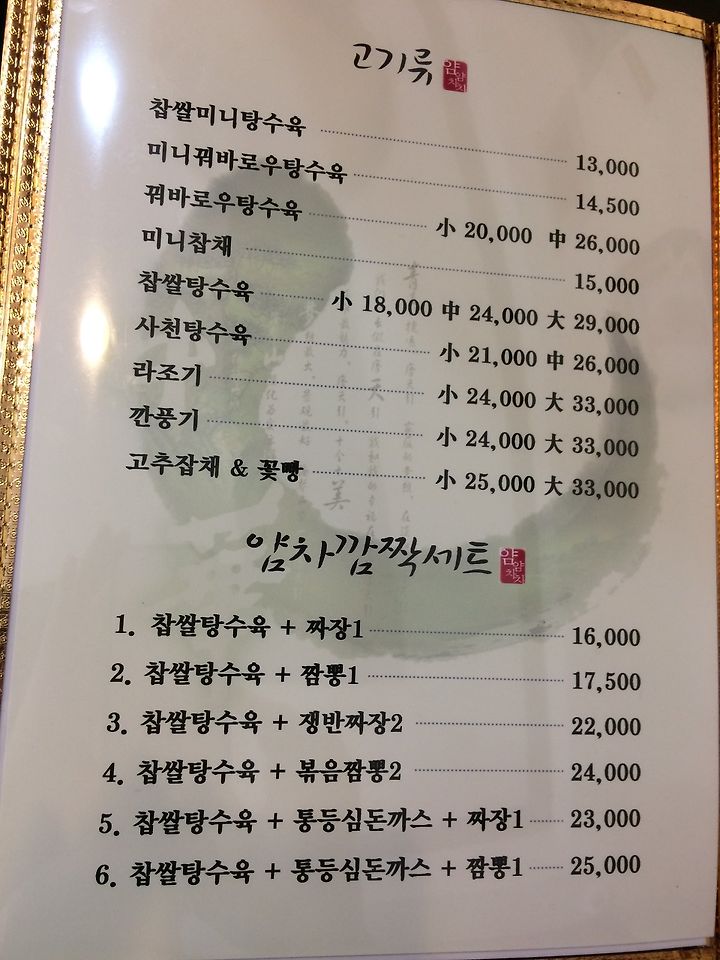 고기류
찹쌀미니탕수육 13,000
미니꿔바로우탕수육 14,500
꿔바로우탕수육 小 20,000 中 26,000
미니잡채 15,000
찹쌀탕수육 小 18,000 中 24,000 大 29,000
사천탕수육 小 21,000 中 26,000
라조기 小 24,000 大 33,000
깐풍기 小 24,000 大 33,000
고추잡채 & 꽃빵 小 25,000 大 33,000
얌차깜짝세트
1. 찹쌀탕수육 + 짜장1 16,000
2. 찹쌀탕수육 + 짬뽕1 17,500
3. 찹쌀탕수육 + 쟁반짜장2 22,000
4. 찹쌀탕수육 + 볶음짬뽕2 24,000
5. 찹쌀탕수육 + 통등심돈까스 + 짜장1 23,000
6. 찹쌀탕수육 + 통등심돈까스 + 짬뽕1 25,000